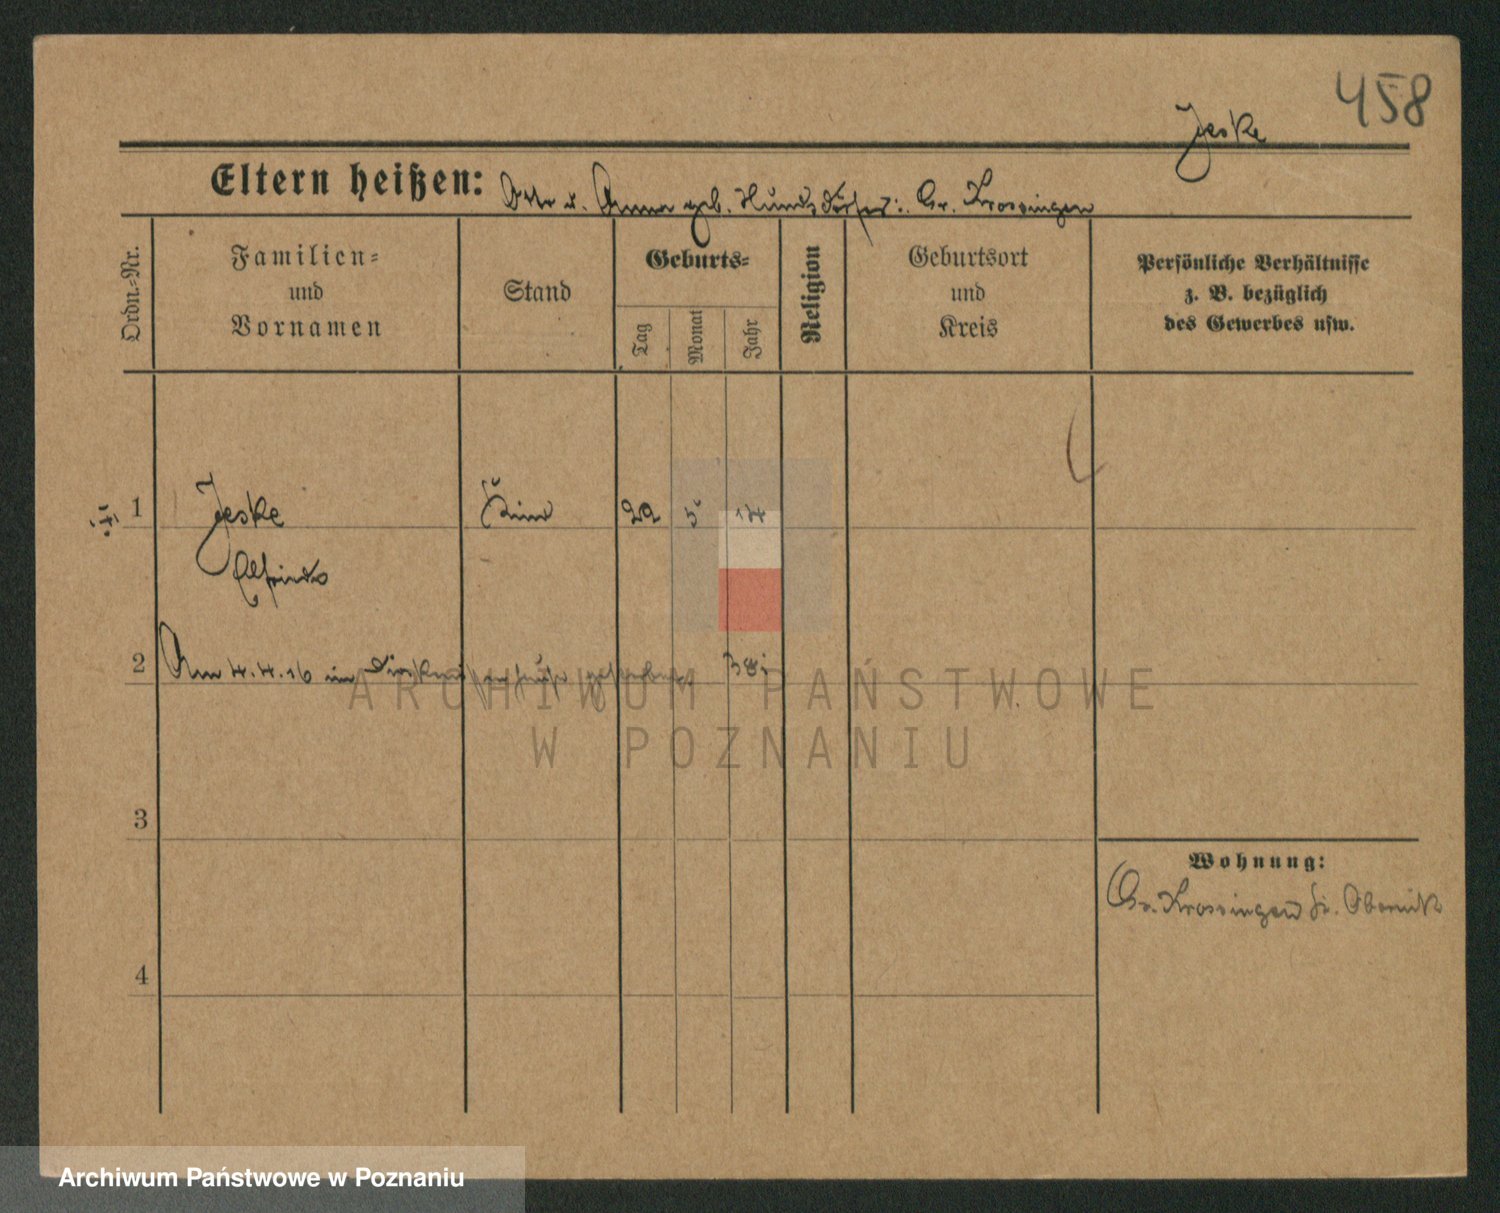 458
Jeske
Eltern heißen: Otto u. Anna geb. Hundsdörfer: Gr. Krossingen
Ordn.-Nr.
Familien-
und
Vornamen
Stand
Geburts-
Tag
Monat
Jahr
Religion
Geburtsort
und
Kreis
Persönliche Verhältnisse
z. B. bezüglich
des Gewerbes usw.
1 Jeske Kind 22 5 14
Alfrieda
2 Am 4.4.16 im gestorben.
ARCHIWUM PAŃSTWOWE
W POZNANIU
3
Wohnung:
Gr. Krossingen Kr. Obornik
4
Archiwum Państwowe w Poznaniu